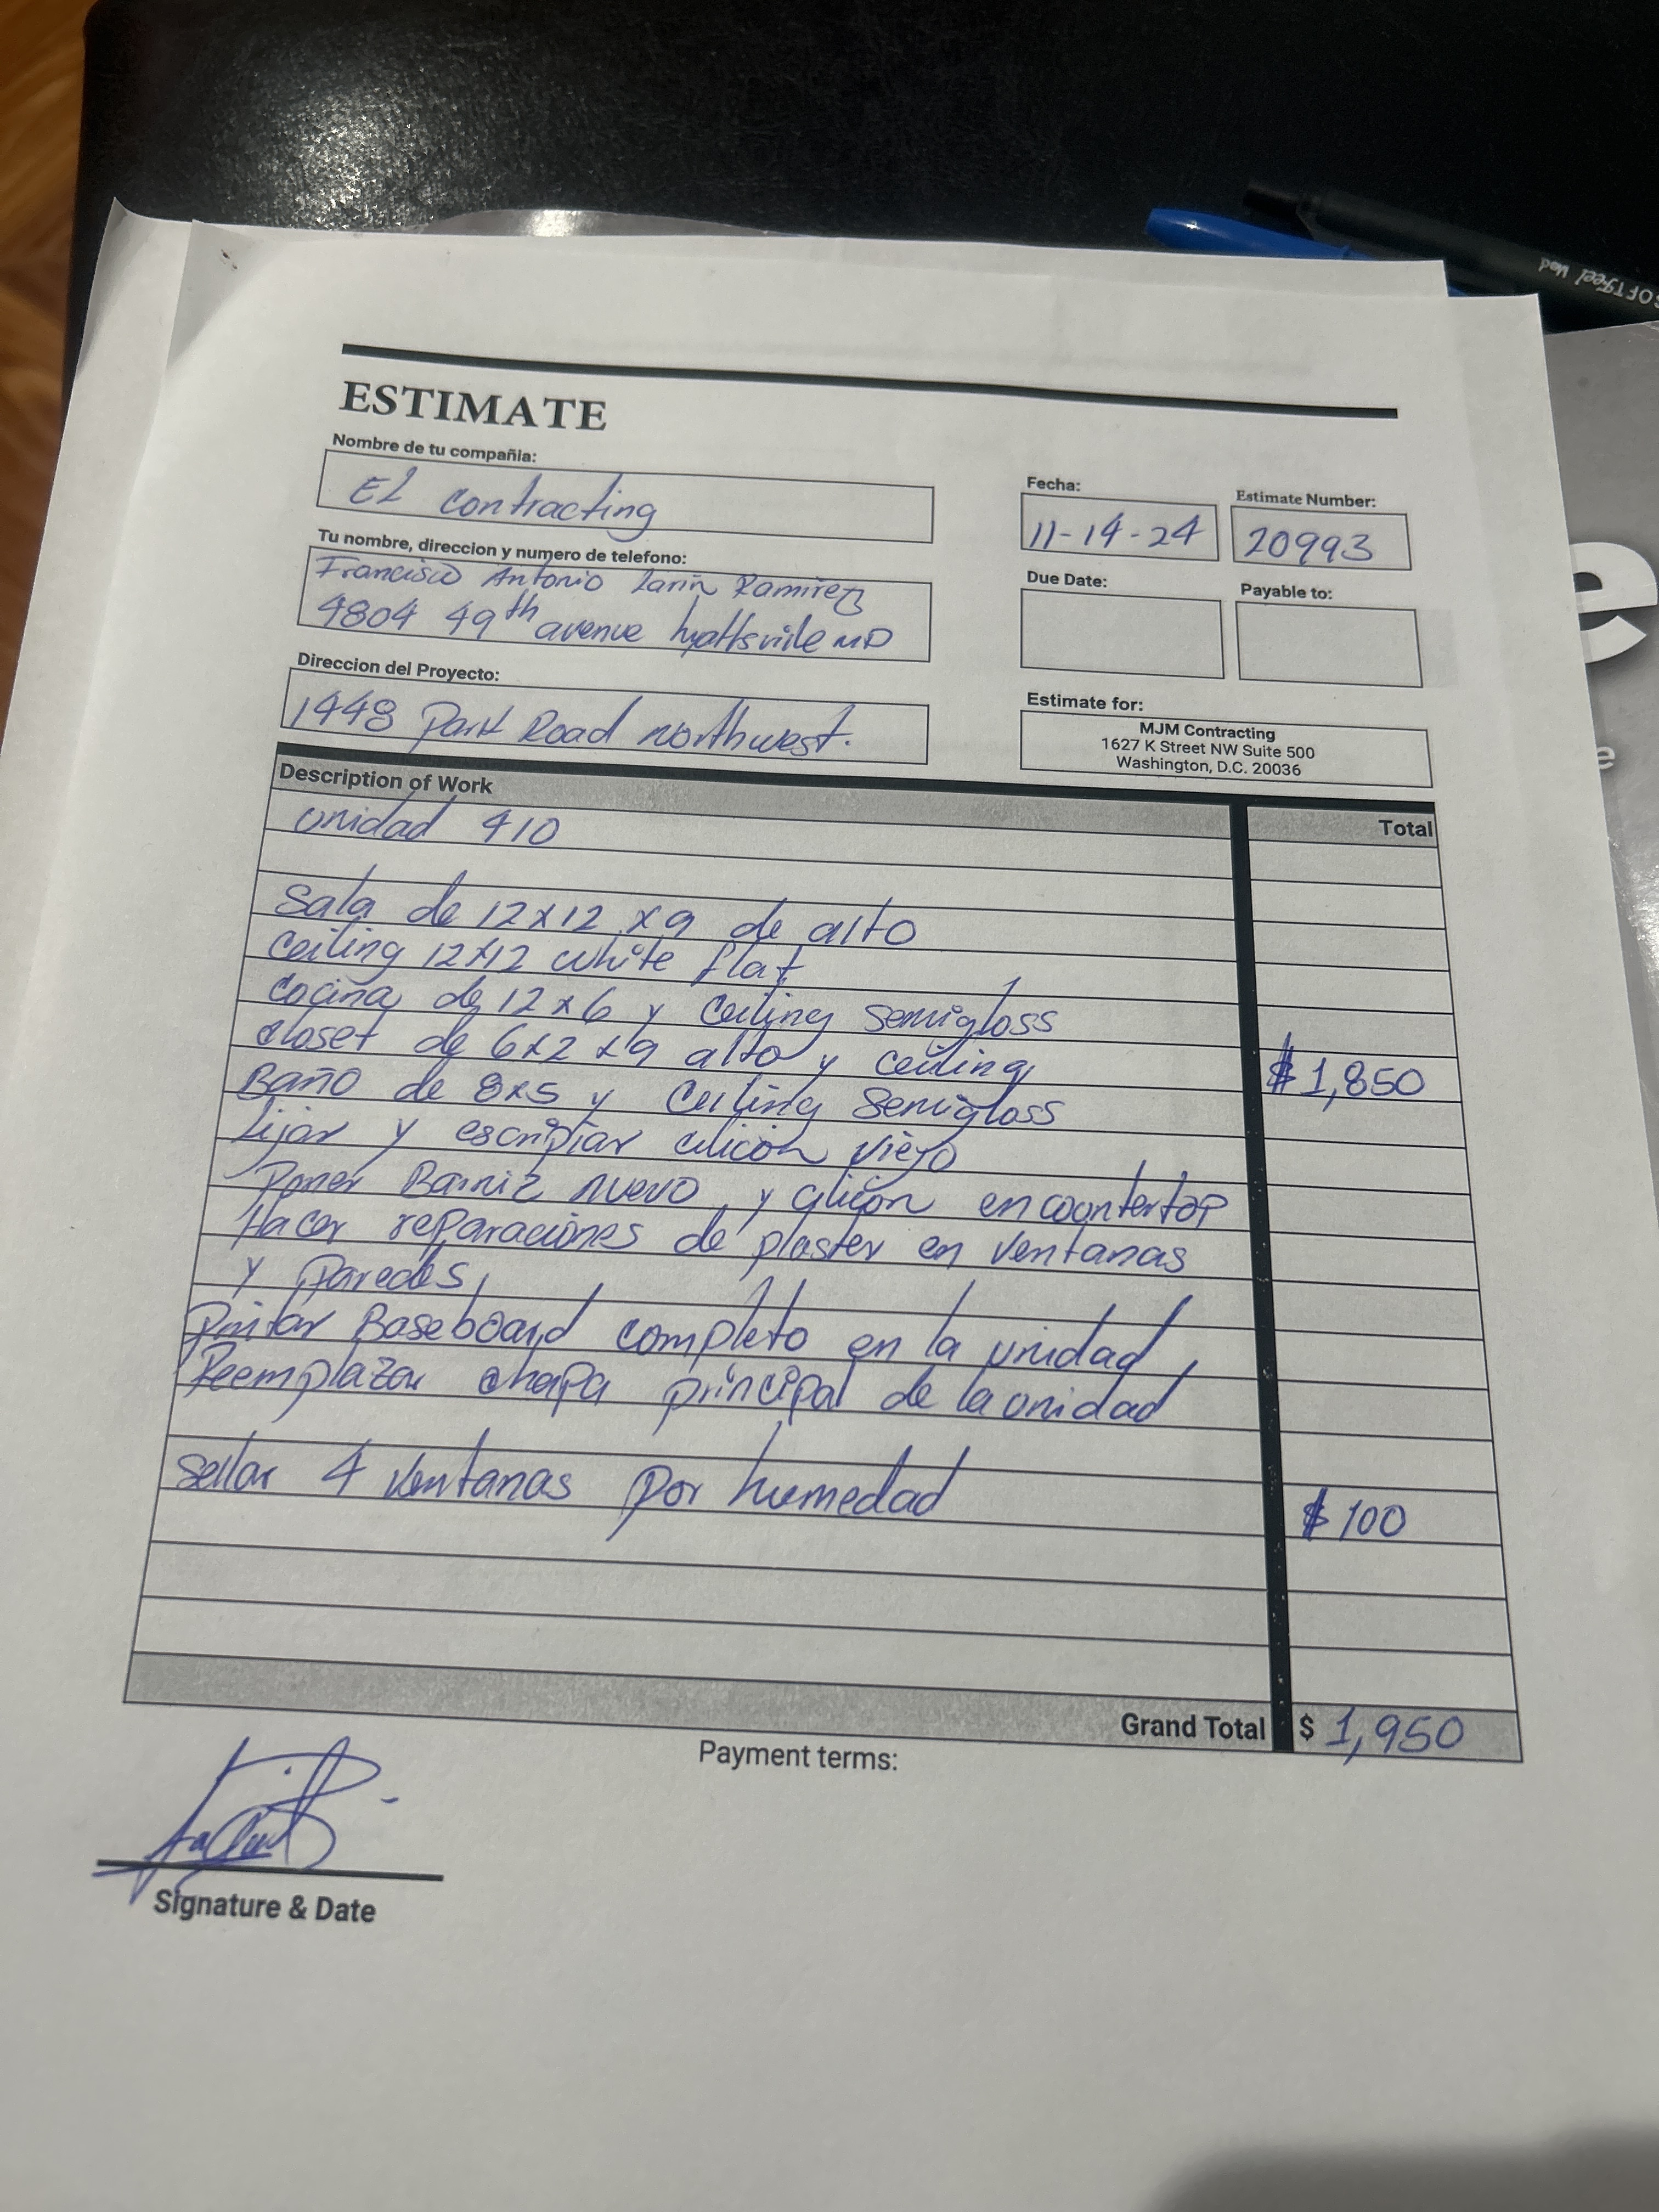 SOFTFeel Med
e
e
ESTIMATE
Nombre de tu compañia:
EL contracting
Fecha:
11-14-24
Estimate Number:
20993
Tu nombre, direccion y numero de telefono:
Francisco Antonio Larin Ramirez
4804 49th avenue hyattsville MD
Due Date:
Payable to:
Direccion del Proyecto:
1448 Park Road northwest.
Estimate for:
MJM Contracting
1627 K Street NW Suite 500
Washington, D.C. 20036
Description of Work
Total
unidad 410
Sala de 12x12 x9 de alto
Ceiling 12x12 white flat
Cocina de 12x6 y Ceiling Semigloss
Closet de 6x2 x9 alto y ceiling
$1,850
Baño de 8x5 y Ceiling Semigloss
Lijar y escripiar cilicon viejo
Poner Barniz nuevo y cilicon en countertop
Hacer reparaciones de plaster en ventanas
y Paredes,
Pintar Baseboard completo en la unidad,
Reemplazar chapa principal de la unidad
Sellar 4 ventanas por humedad
$100
Grand Total $ 1,950
Payment terms:
Signature & Date